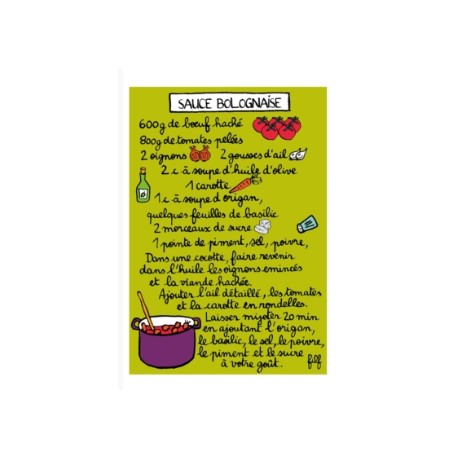 SAUCE BOLOGNAISE
600g de bœuf haché
800g de tomates pelées
2 oignons 2 gousses d'ail
2 c à soupe d'huile d'olive
1 carotte
1 c à soupe d'origan,
quelques feuilles de basilic
2 morceaux de sucre
1 pointe de piment, sel, poivre,
Dans une cocotte, faire revenir
dans l'huile les oignons émincés
et la viande hachée.
Ajouter l'ail détaillé, les tomates
et la carotte en rondelles.
Laisser mijoter 20 min
en ajoutant l'origan,
le basilic, le sel, le poivre,
le piment et le sucre
à votre goût.